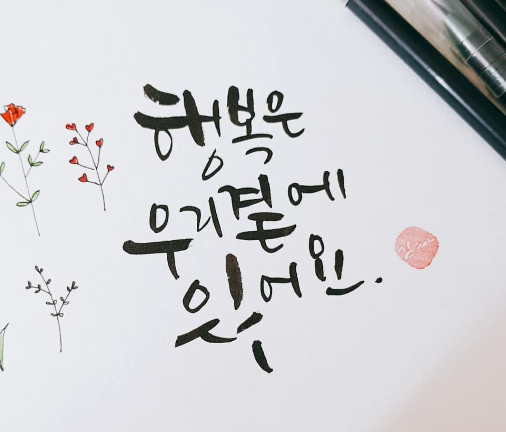 행복은
우리곁에
있어요.